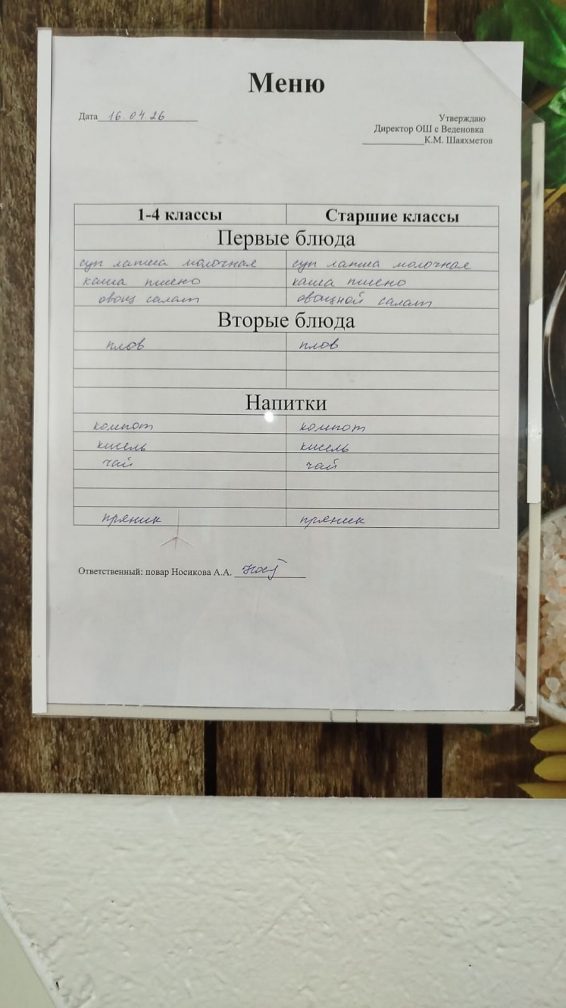 Меню
Дата 16.04.26 Утверждаю
Директор ОШ с Веденовка
К.М. Шаяхметов
1-4 классы Старшие классы
Первые блюда
суп лапша молочная суп лапша молочная
каша пшено каша пшено
овощ салат овощной салат
Вторые блюда
плов плов
Напитки
компот компот
кисель кисель
чай чай
пряник пряник
Ответственный: повар Носикова А.А.